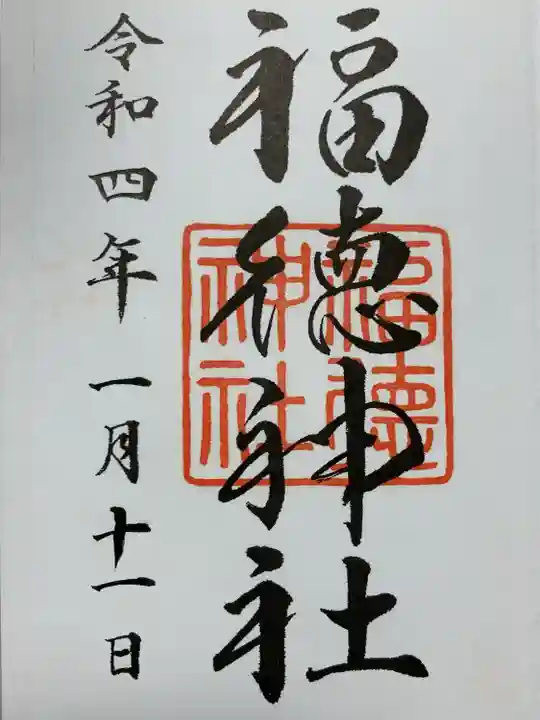 福徳神社
福徳神社
令和四年 一月十一日